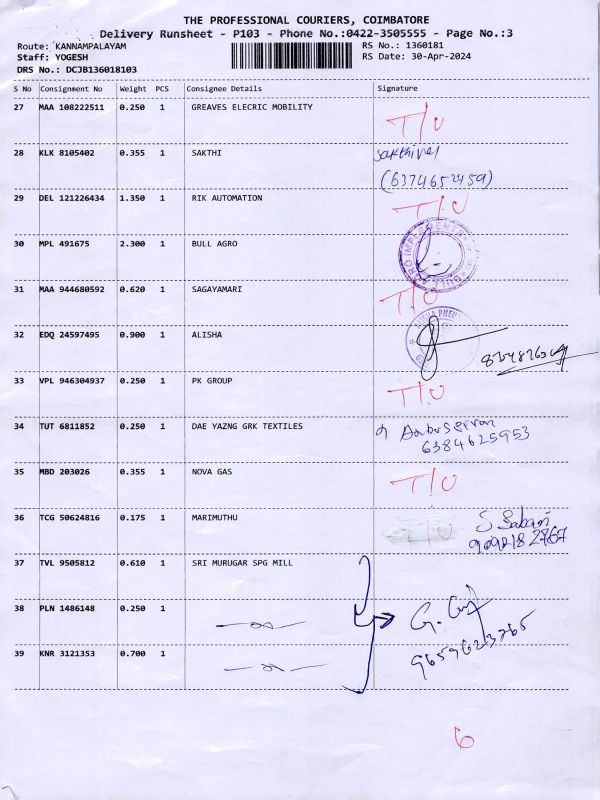 THE PROFESSIONAL COURIERS, COIMBATORE
Delivery Runsheet - P103 - Phone No.:0422-3505555 - Page No.:3
Route: KANNAMPALAYAM RS No.: 1360181
Staff: YOGESH RS Date: 30-Apr-2024
DRS No.: DCJB136018103
S No Consignment No Weight PCS Consignee Details Signature
27 MAA 108222511 0.250 1 GREAVES ELECRIC MOBILITY T/U
28 KLK 8105402 0.355 1 SAKTHI Sakthivel
(6374652459)
29 DEL 121226434 1.350 1 RIK AUTOMATION T/U
30 MPL 491675 2.300 1 BULL AGRO
31 MAA 944680592 0.620 1 SAGAYAMARI T/U
32 EDQ 24597495 0.900 1 ALISHA
33 VPL 946304937 0.250 1 PK GROUP T/U
34 TUT 6811852 0.250 1 DAE YAZNG GRK TEXTILES
6384625953
35 MBD 203026 0.355 1 NOVA GAS T/U
36 TCG 50624816 0.175 1 MARIMUTHU T/U S Sabari
37 TVL 9505812 0.610 1 SRI MURUGAR SPG MILL
38 PLN 1486148 0.250 1
9659623265
39 KNR 3121353 0.700 1
6